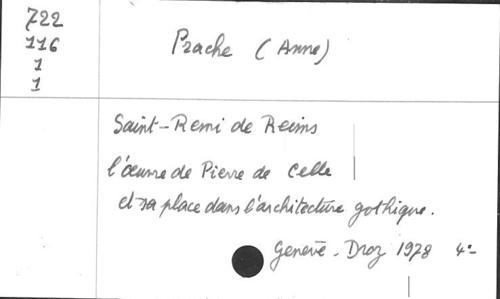 722
116
1
1
Prache (Anne)
Saint-Remi de Reims
l'œuvre de Pierre de Celle
et sa place dans l'architecture gothique.
Genève. Droz 1978 4°